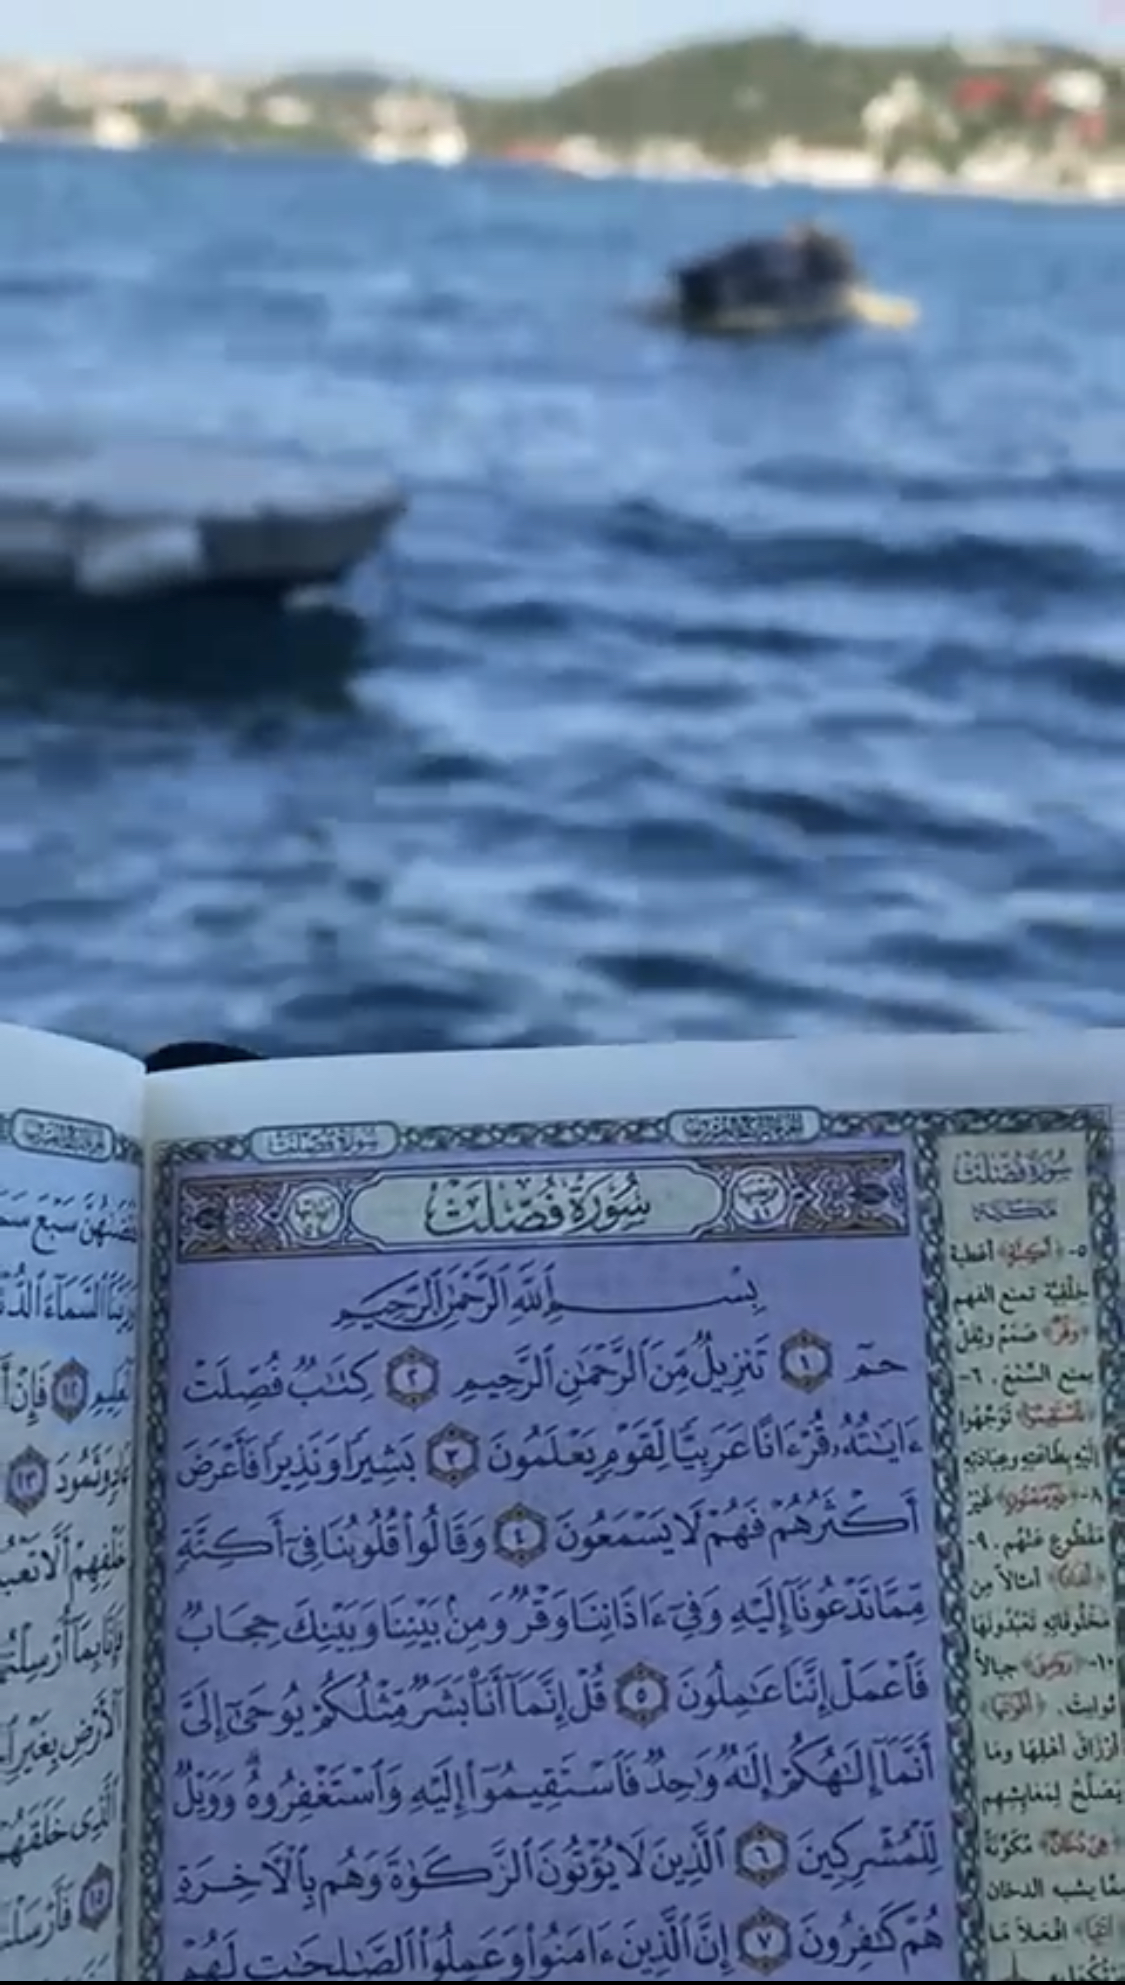 سورة فصلت
سُورَةُ فُصِّلَتْ
بِسْمِ ٱللَّهِ ٱلرَّحْمَٰنِ ٱلرَّحِيمِ
حمٓ ١ تَنزِيلٌ مِّنَ ٱلرَّحْمَٰنِ ٱلرَّحِيمِ ٢ كِتَٰبٌ فُصِّلَتْ
ءَايَٰتُهُۥ قُرْءَانًا عَرَبِيًّا لِّقَوْمٍ يَعْلَمُونَ ٣ بَشِيرًا وَنَذِيرًا فَأَعْرَضَ
أَكْثَرُهُمْ فَهُمْ لَا يَسْمَعُونَ ٤ وَقَالُوا۟ قُلُوبُنَا فِىٓ أَكِنَّةٍ
مِّمَّا تَدْعُونَآ إِلَيْهِ وَفِىٓ ءَاذَانِنَا وَقْرٌ وَمِنۢ بَيْنِنَا وَبَيْنِكَ حِجَابٌ
فَٱعْمَلْ إِنَّنَا عَٰمِلُونَ ٥ قُلْ إِنَّمَآ أَنَا۠ بَشَرٌ مِّثْلُكُمْ يُوحَىٰٓ إِلَىَّ
أَنَّمَآ إِلَٰهُكُمْ إِلَٰهٌ وَٰحِدٌ فَٱسْتَقِيمُوٓا۟ إِلَيْهِ وَٱسْتَغْفِرُوهُ ۗ وَوَيْلٌ
لِّلْمُشْرِكِينَ ٦ ٱلَّذِينَ لَا يُؤْتُونَ ٱلزَّكَوٰةَ وَهُم بِٱلْءَاخِرَةِ
هُمْ كَٰفِرُونَ ٧ إِنَّ ٱلَّذِينَ ءَامَنُوا۟ وَعَمِلُوا۟ ٱلصَّٰلِحَٰتِ لَهُمْ
سورة فصلت
مكية
٥- ﴿أكنة﴾ أغطية
خلقية تمنع الفهم
﴿وقر﴾ صمم وثقل
يمنع السمع. ٦-
﴿فاستقيموا﴾ توجهوا
إليه بطاعته وعبادته
٨- ﴿غير ممنون﴾ غير
مقطوع عنهم. ٩-
﴿أندادا﴾ أمثالا من
مخلوقاته تعبدونها
١٠- ﴿رواسي﴾ جبالا
ثوابت. ﴿أقواتها﴾
أرزاق أهلها وما
يصلح لمعايشهم
﴿هي دخان﴾ مكونة
مما يشبه الدخان
﴿ائتيا﴾ افعلا ما
فَقَضَىٰهُنَّ سَبْعَ
وَزَيَّنَّا ٱلسَّمَآءَ ٱلدُّنْيَا
ٱلْعَلِيمِ ١٢ فَإِنْ
عَادٍ وَثَمُودَ ١٣
خَلْفِهِمْ أَلَّا
فَإِنَّا بِمَآ أُرْسِلْتُم
ٱلْأَرْضِ بِغَيْرِ
ٱلَّذِى خَلَقَهُمْ
١٥ فَأَرْسَلْنَا